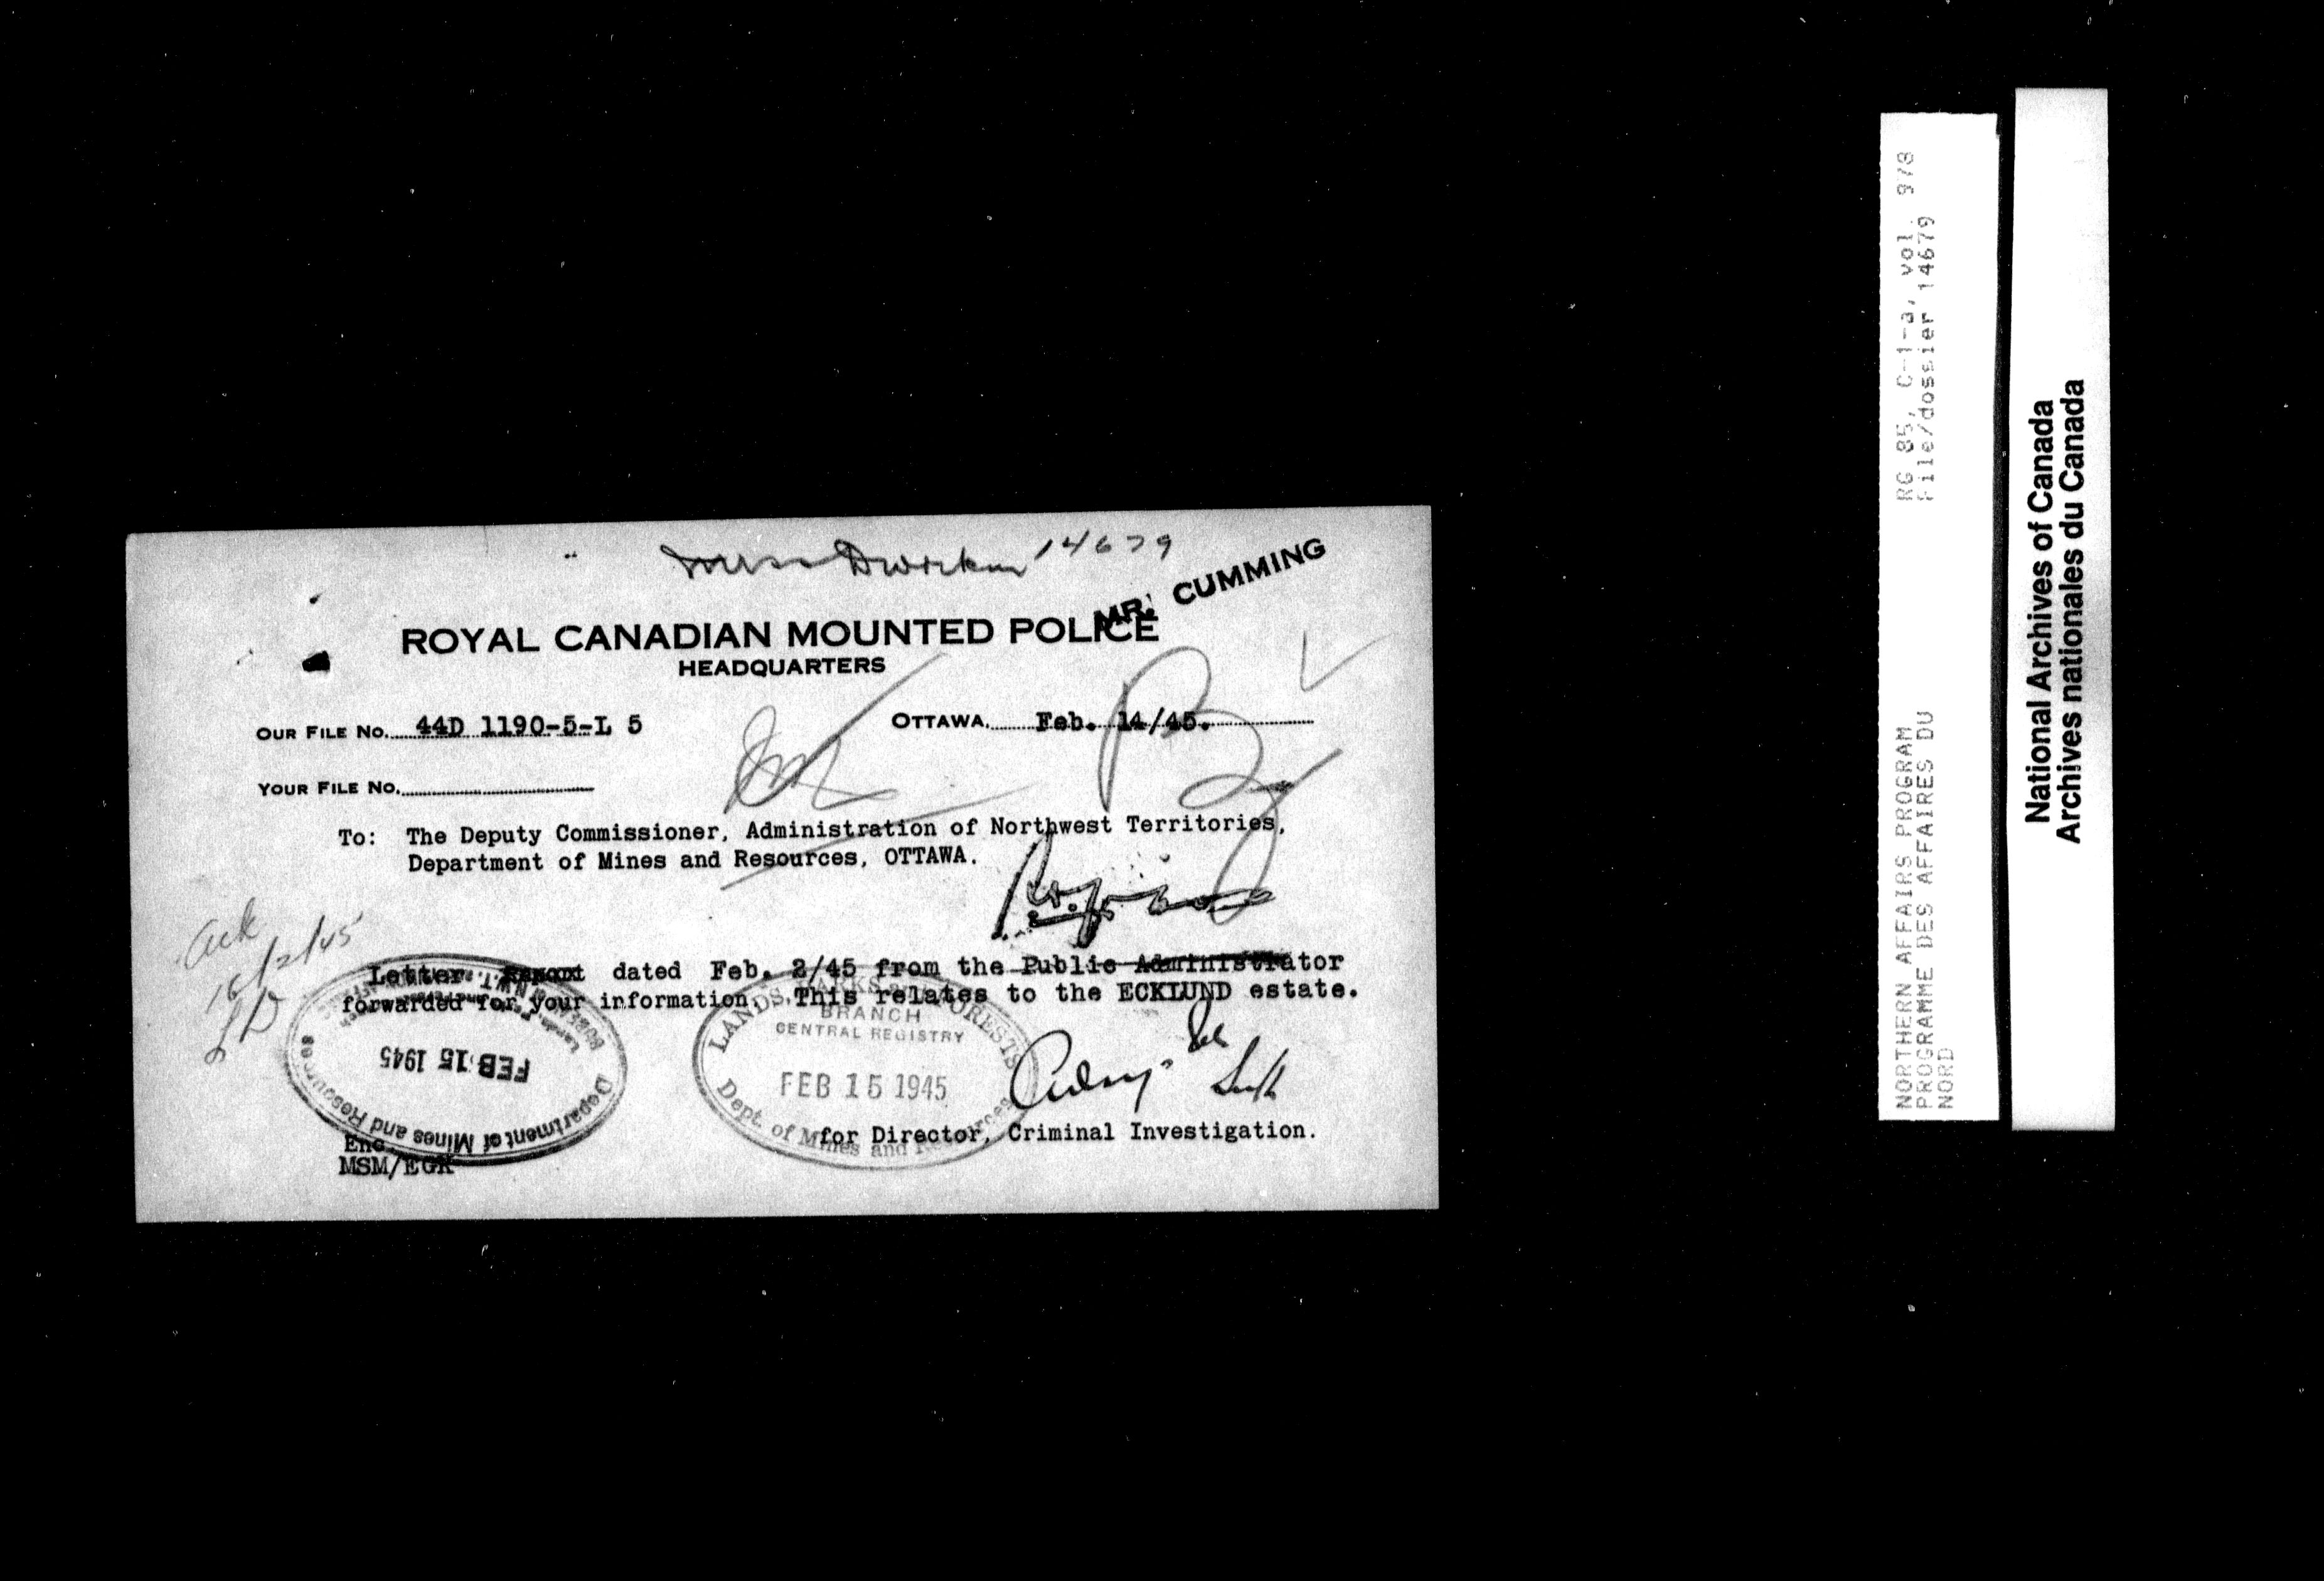 Miss Dworkin 14679
MR. CUMMING
ROYAL CANADIAN MOUNTED POLICE
HEADQUARTERS
OUR FILE NO. 44D 1190-5-L 5
OTTAWA, Feb. 14/45.
YOUR FILE NO.
To: The Deputy Commissioner, Administration of Northwest Territories,
Department of Mines and Resources, OTTAWA.
Ack
16/2/45
Letter dated Feb. 2/45 from the Public Administrator
forwarded for your information. This relates to the ECKLUND estate.
FEB 15 1945
Department of Mines and Resources
LANDS, PARKS AND FORESTS
BRANCH
CENTRAL REGISTRY
FEB 15 1945
Dept. of Mines and Resources
for Director, Criminal Investigation.
Enc.
MSM/EGK
RG 85, C-1-a, vol. 978
File/dossier 14679
NORTHERN AFFAIRS PROGRAM
PROGRAMME DES AFFAIRES DU
NORD
National Archives of Canada
Archives nationales du Canada